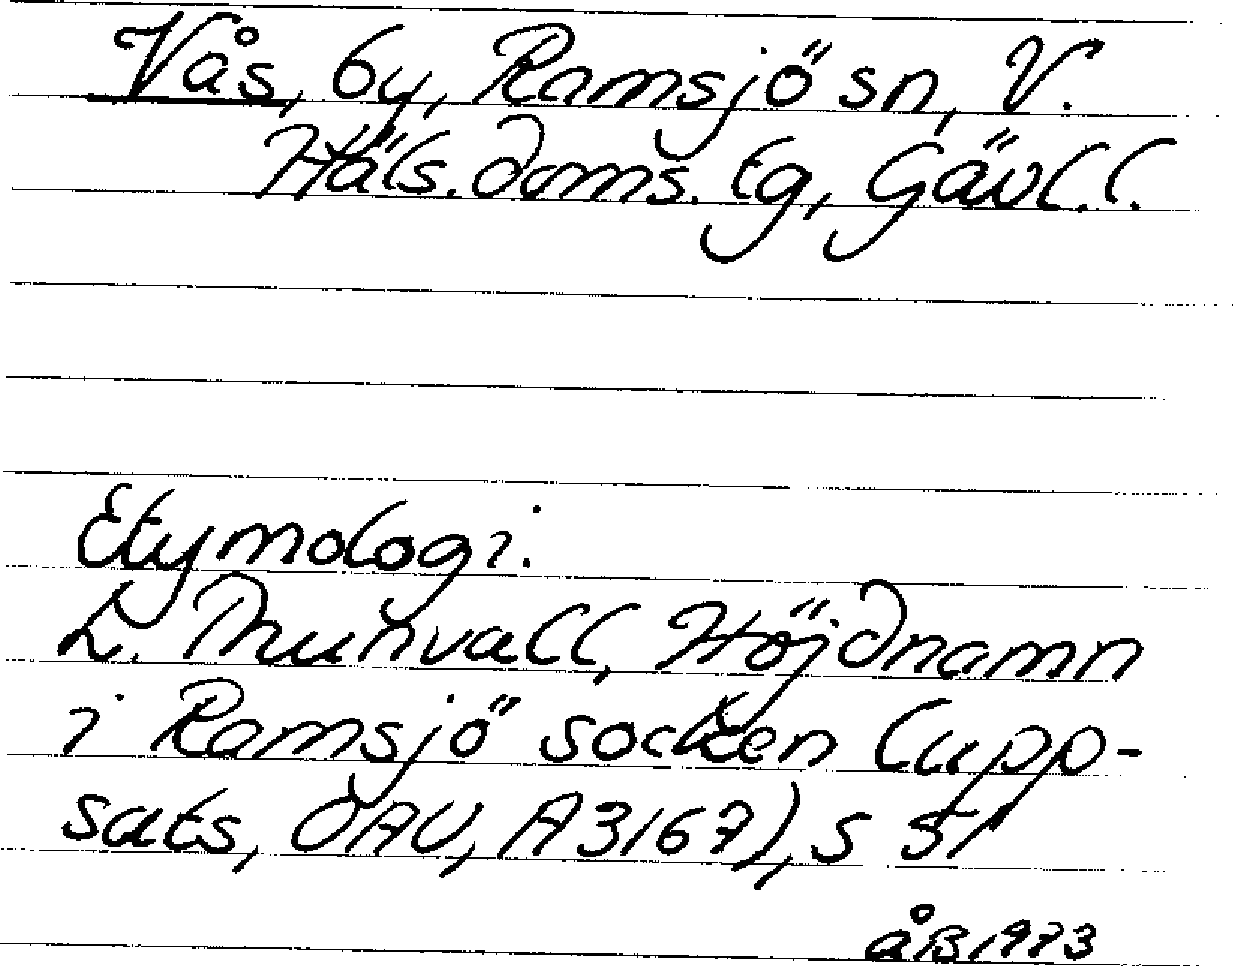 Vås, by, Ramsjö sn, V.
Häls. doms. tg, Gävl. l.
Etymologi.
L. Thunvall, Höjdnamn
i Ramsjö socken (upp-
sats, OAU, A3167), s 51
ÅB 1973